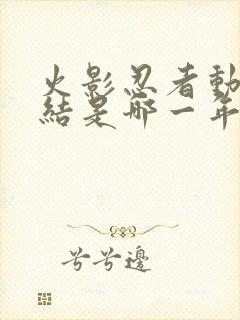 火影忍者動
結是哪一年
兮兮邊